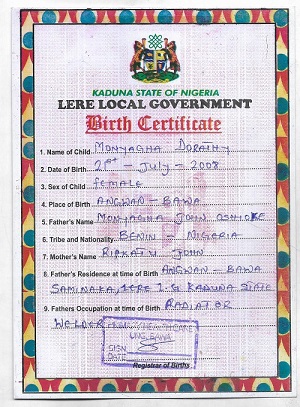 KADUNA STATE OF NIGERIA
LERE LOCAL GOVERNMENT
Birth Certificate
1. Name of Child MONYAGHA DORATHY
2. Date of Birth 21st - JULY - 2008
3. Sex of Child female
4. Place of Birth ANGWAN - BAWA
5. Father's Name MONYAGHA JOHN OSHIOKE
6. Tribe and Nationality BENIN - NIGERIA
7. Mother's Name RIFKATU JOHN
8. Father's Residence at time of Birth ANGWAN - BAWA
SAMINAKA, LERE L.G KADUNA STATE
9. Fathers Occupation at time of Birth RADIATOR
WELDER
SIGN
DATE
Registrar of Births